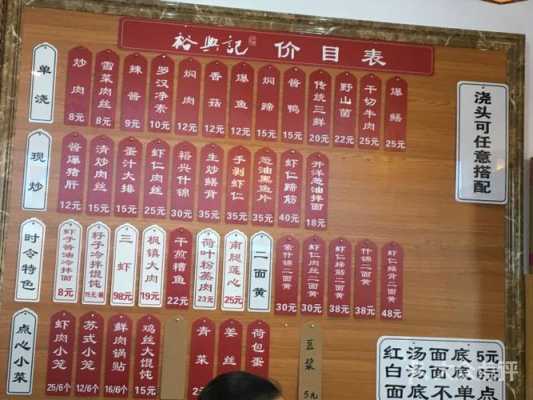 裕興記 价目表
单浇
炒肉 8元
雪菜肉丝 8元
辣酱 9元
罗汉净素 10元
焖肉 12元
香菇 12元
爆鱼 12元
焖蹄 15元
酱鸭 15元
传统三鲜 20元
野山菌 22元
干切牛肉 25元
爆鳝 25元
浇头可任意搭配
现炒
酱爆猪肝 12元
清炒肉丝 15元
蛋汁大排 15元
虾仁肉丝 25元
裕兴什锦 30元
生炒鳝背 35元
手剥虾仁 35元
葱油黑鱼片 35元
虾仁蹄筋 40元
开洋葱油拌面 18元
时令特色
虾子酱油冷拌面 8元
籽子冷拌馄饨
三虾 98元
枫镇大肉 19元
干煎糟鱼 22元
荷叶粉蒸肉 23元
南腿莲心 25元
二面黄
素什锦二面黄 30元
虾仁肉丝二面黄 30元
虾仁蹄筋二面黄 38元
什锦二面黄 38元
虾仁鳝背二面黄 48元
点心小菜
虾肉小笼 25/6个
苏式小笼 12/6个
鲜肉锅贴 16/6个
鸡丝大馄饨 15元
青菜
姜丝
荷包蛋
豆浆 5元
红汤面底 5元
白汤面底
面底不单点